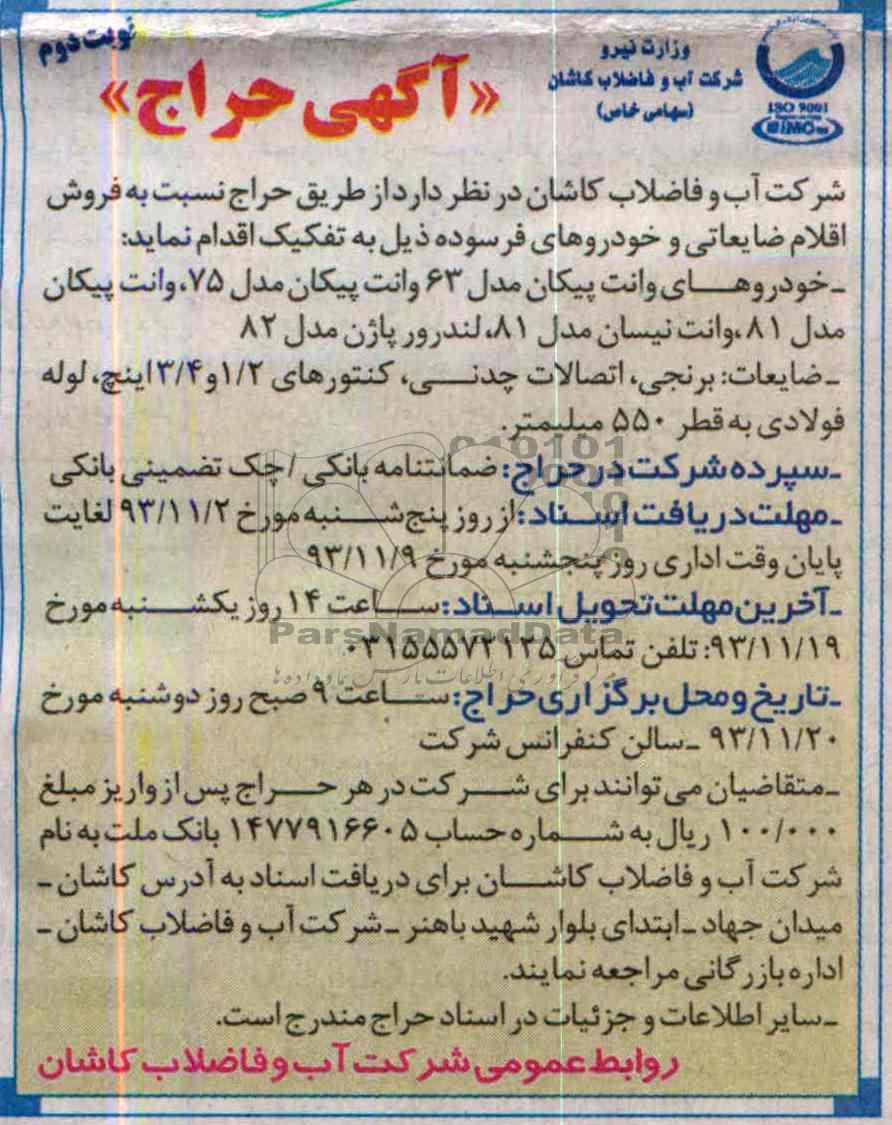 نوبت دوم
وزارت نیرو
شرکت آب و فاضلاب کاشان
(سهامی خاص)
ISO 9001
«آگهی حراج»
شرکت آب و فاضلاب کاشان در نظر دارد از طریق حراج نسبت به فروش
اقلام ضایعاتی و خودروهای فرسوده ذیل به تفکیک اقدام نماید:
-خودروهای وانت پیکان مدل ۶۳ وانت پیکان مدل ۷۵، وانت پیکان
مدل ۸۱، وانت نیسان مدل ۸۱، لندرور پاژن مدل ۸۲
-ضایعات: برنجی، اتصالات چدنی، کنتورهای ۱/۲ و ۳/۴ اینچ، لوله
فولادی به قطر ۵۵۰ میلیمتر.
-سپرده شرکت در حراج: ضمانتنامه بانکی / چک تضمینی بانکی
-مهلت دریافت اسناد: از روز پنج شنبه مورخ ۹۳/۱۱/۲ لغایت
پایان وقت اداری روز پنجشنبه مورخ ۹۳/۱۱/۹
-آخرین مهلت تحویل اسناد: ساعت ۱۴ روز یکشنبه مورخ
۹۳/۱۱/۱۹: تلفن تماس ۰۳۱۵۵۵۷۲۱۲۵
ParsNamadData
-تاریخ و محل برگزاری حراج: ساعت ۹ صبح روز دوشنبه مورخ
۹۳/۱۱/۲۰ -سالن کنفرانس شرکت
-متقاضیان می توانند برای شرکت در هر حراج پس از واریز مبلغ
۱۰۰/۰۰۰ ریال به شماره حساب ۱۴۷۷۹۱۶۶۰۵ بانک ملت به نام
شرکت آب و فاضلاب کاشان برای دریافت اسناد به آدرس کاشان -
میدان جهاد -ابتدای بلوار شهید باهنر -شرکت آب و فاضلاب کاشان -
اداره بازرگانی مراجعه نمایند.
-سایر اطلاعات و جزئیات در اسناد حراج مندرج است.
روابط عمومی شرکت آب و فاضلاب کاشان